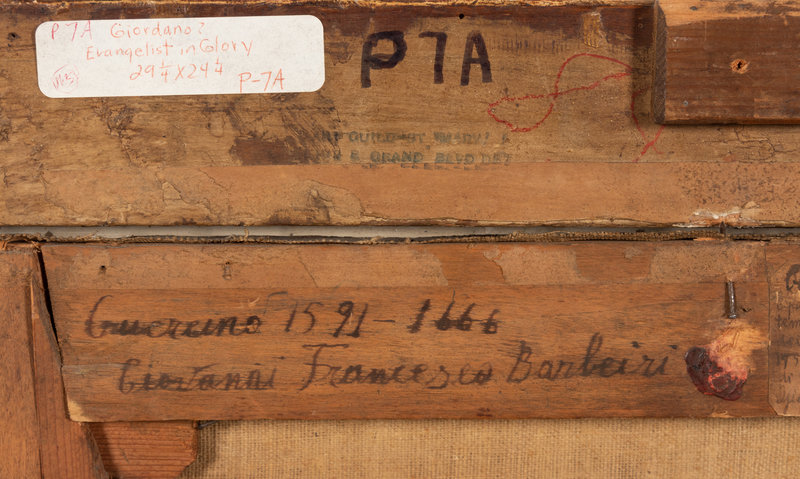 P7A Giordano?
Evangelist in Glory
29 1/4 X 24 1/4
P-7A
P7A
E GRAND BLVD DET
Guercino 1591-1666
Giovanni Francesco Barbeiri